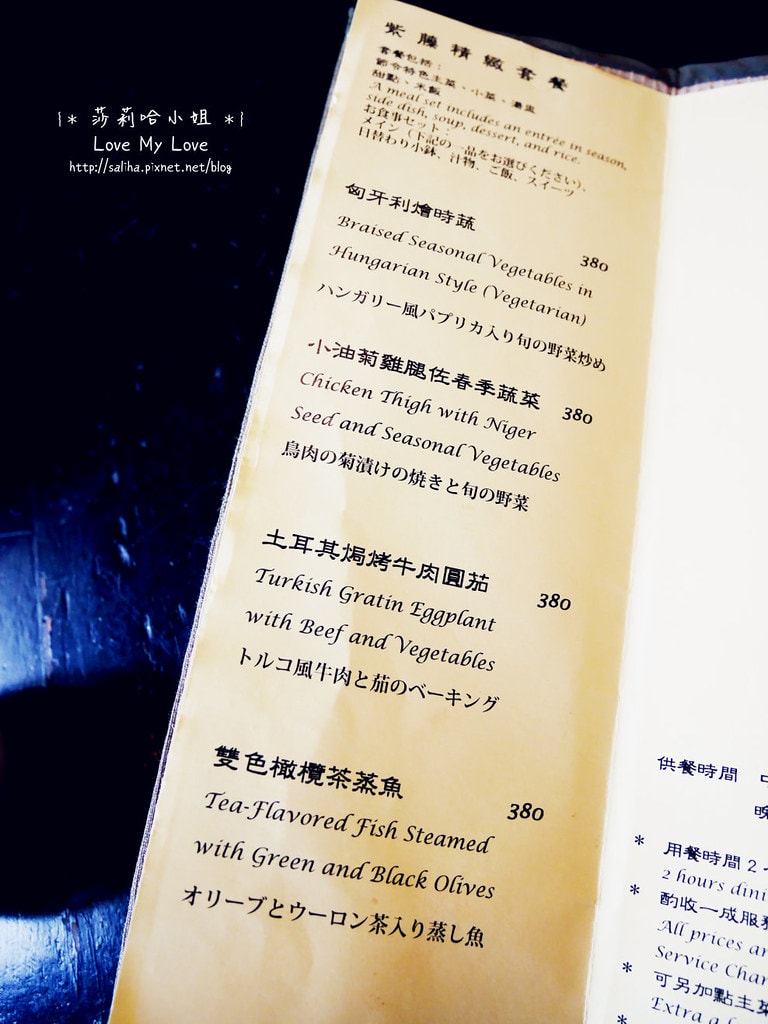 {* 莎莉哈小姐 *}
Love My Love
http://saliha.pixnet.net/blog
紫藤精緻套餐
套餐包括：
節令特色主菜、小菜、湯盅
甜點、米飯
A meal set includes an entrée in season,
side dish, soup, dessert, and rice.
お食事セット：
メイン（下記の一品をお選びください）、
日替わり小鉢、汁物、ご飯、スイーツ
匈牙利燴時蔬
380
Braised Seasonal Vegetables in
Hungarian Style (Vegetarian)
ハンガリー風パプリカ入り旬の野菜炒め
小油菊雞腿佐春季蔬菜
380
Chicken Thigh with Niger
Seed and Seasonal Vegetables
鳥肉の菊漬けの焼きと旬の野菜
土耳其焗烤牛肉圓茄
380
Turkish Gratin Eggplant
with Beef and Vegetables
トルコ風牛肉と茄のベーキング
雙色橄欖茶蒸魚
380
Tea-Flavored Fish Steamed
with Green and Black Olives
オリーブとウーロン茶入り蒸し魚
供餐時間
晚
* 用餐時間2
2 hours dini
* 酌收一成服務
All prices ar
Service Char
* 可另加點主菜
Extra a
*